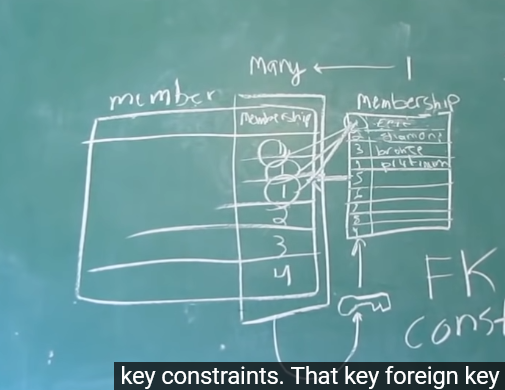 Many ← 1
member
Membership
Membership
1
1
1
2
3
4
2 diamond
3 bronze
4 platinum
5
6
7
8
FK
const
key constraints. That key foreign key